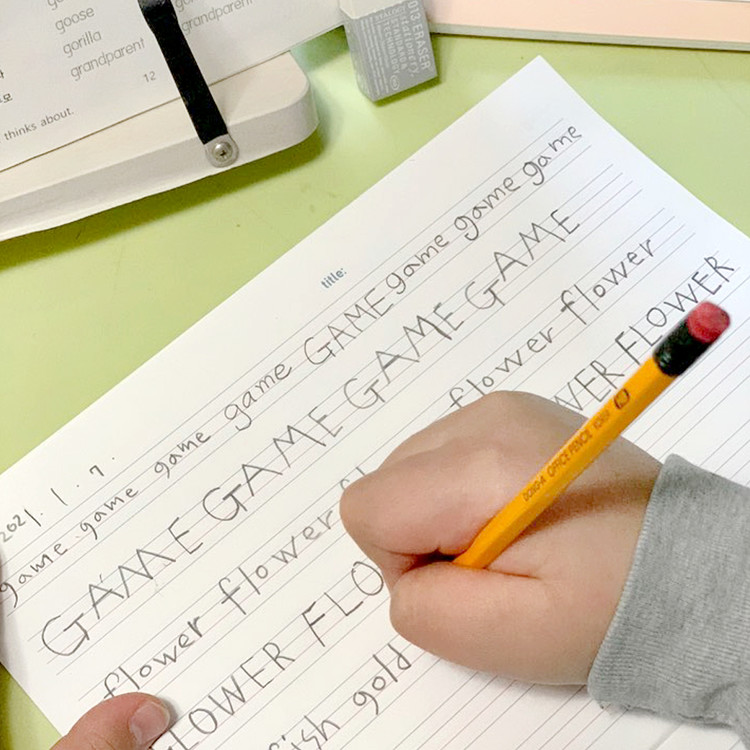 goose
gorilla
grandparent
grandparent
12
thinks about.
013-ERASER
title:
2021. 1. 7.
game game game game GAME game game game
GAME GAME GAME GAME GAME
flower flower flower flower
FLOWER FLO WER FLOWER
gold
DONG-A OFFICE PENCIL